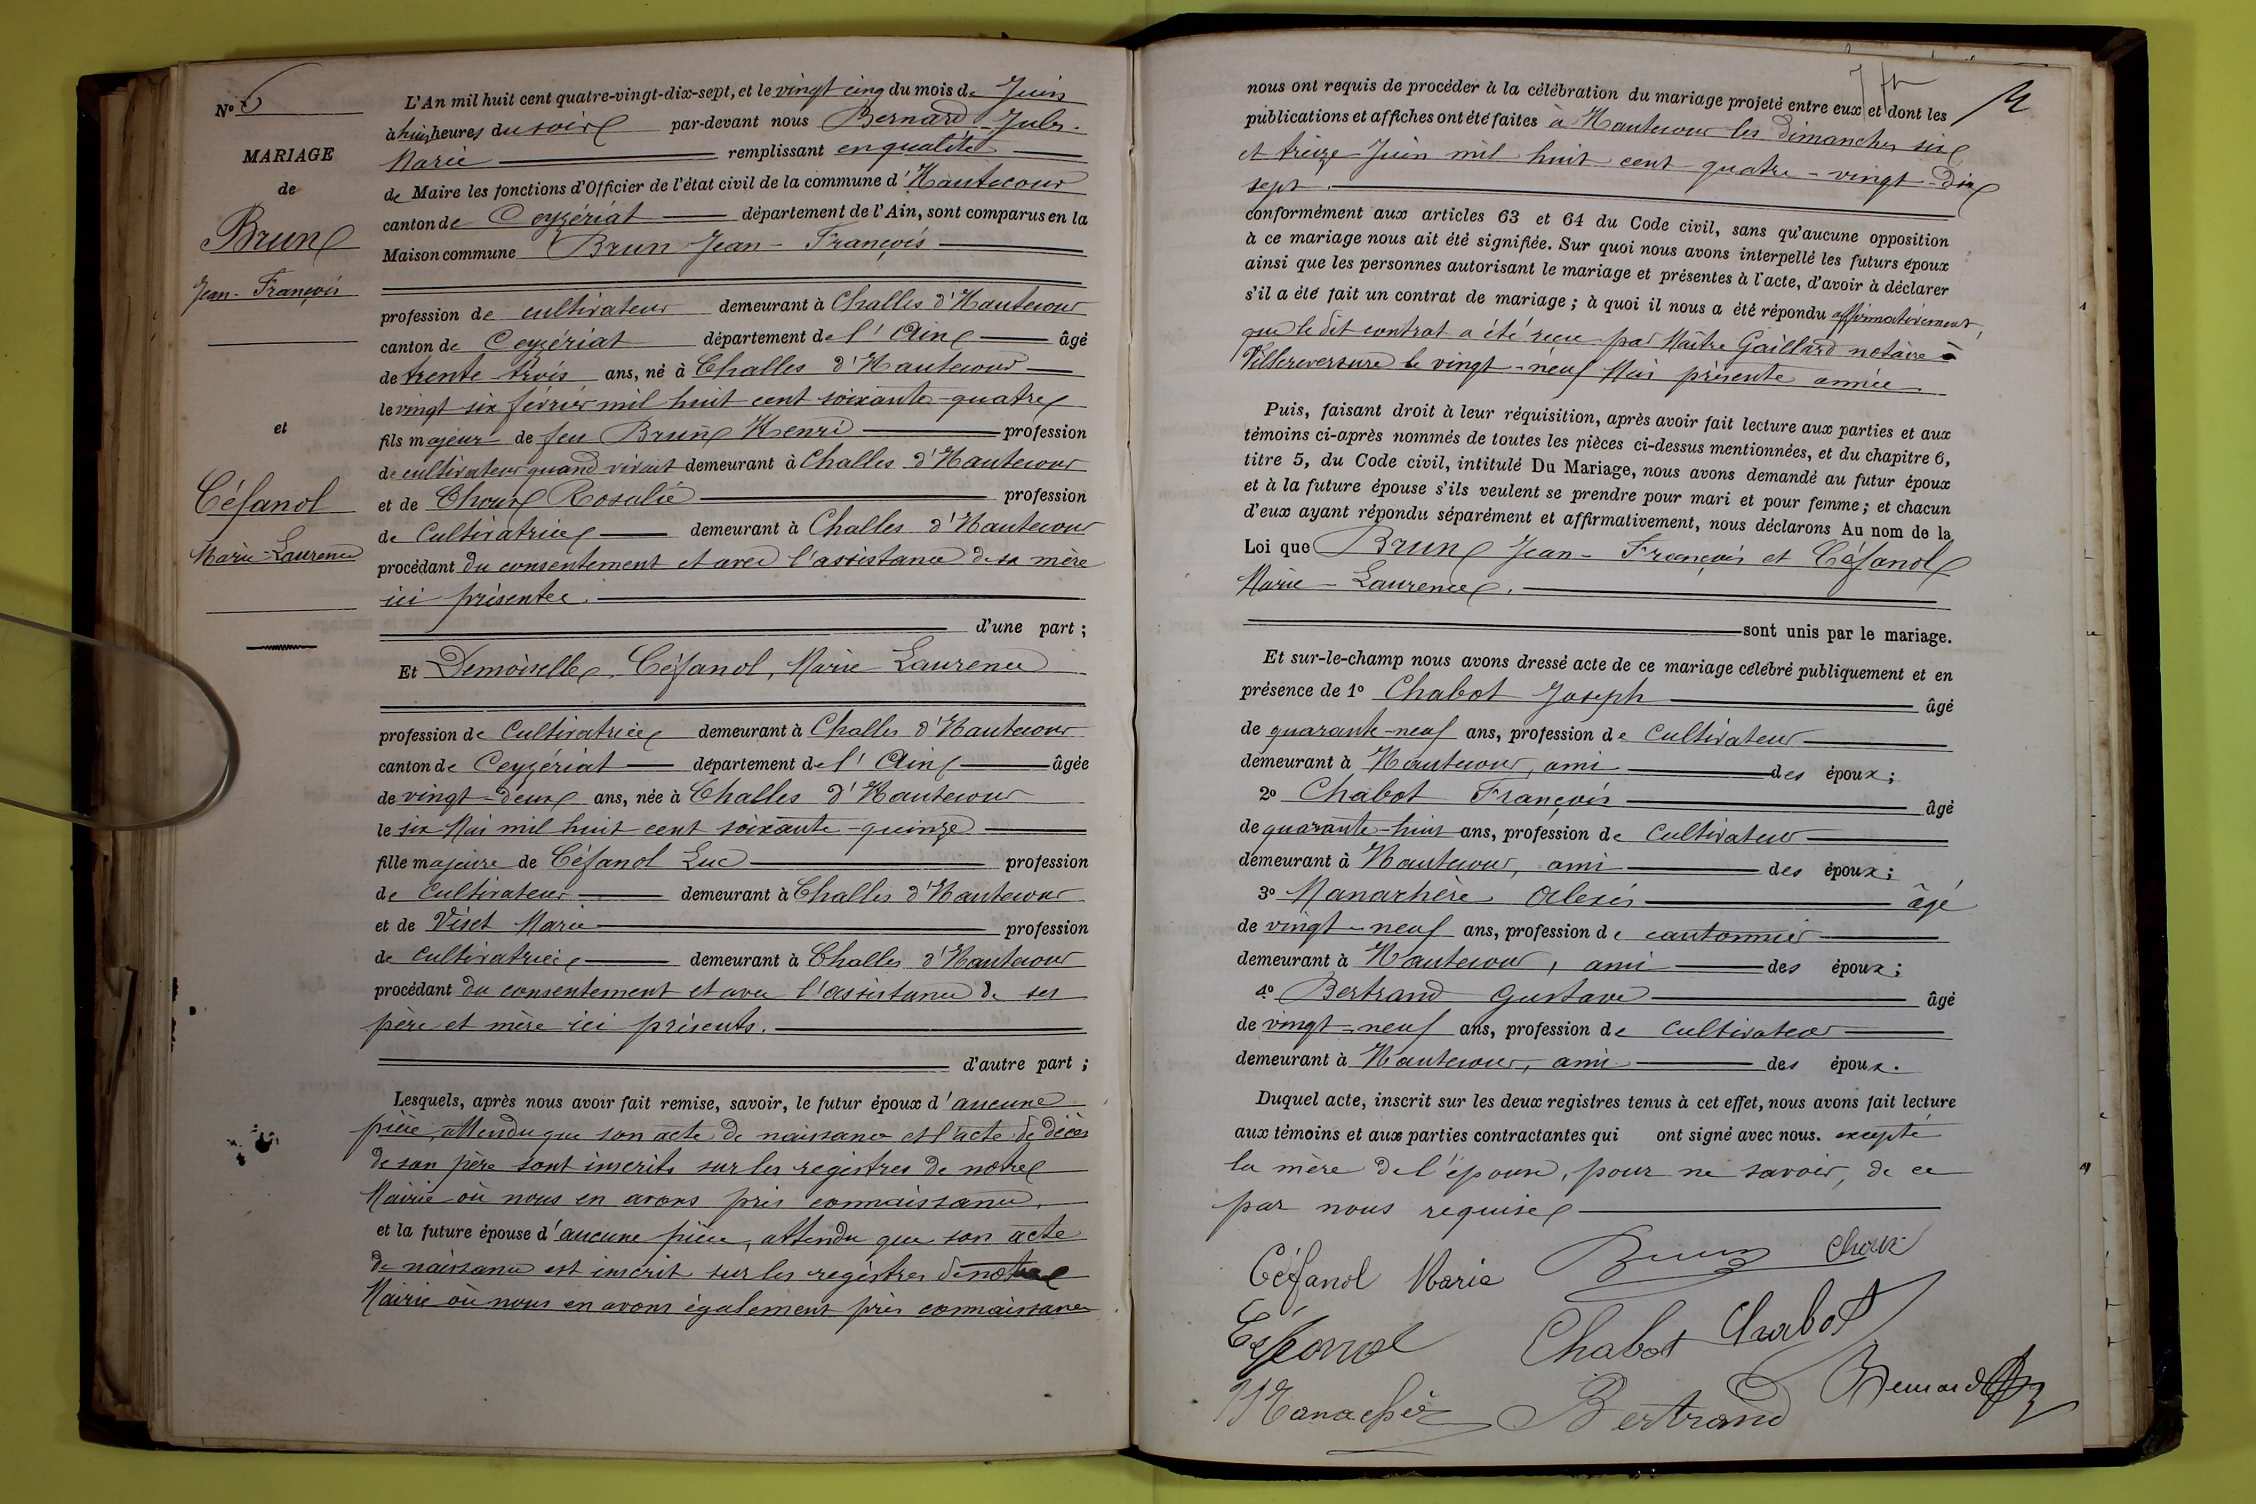 N° 6
MARIAGE
de
Brun
Jean-François
et
Céfanol
Marie-Laurence
L'An mil huit cent quatre-vingt-dix-sept, et le vingt cinq du mois de Juin
à huit heures du soir par-devant nous Bernard Jules
Marie remplissant en qualité
de Maire les fonctions d'Officier de l'état civil de la commune d'Hautecour
canton de Ceyzériat département de l'Ain, sont comparus en la
Maison commune Brun Jean-François
profession de cultivateur demeurant à Challes d'Hautecour
canton de Ceyzériat département de l'Ain âgé
de trente trois ans, né à Challes d'Hautecour
le vingt six février mil huit cent soixante-quatre
fils majeur de feu Brun Henri profession
de cultivateur quand vivait demeurant à Challes d'Hautecour
et de Choux Rosalie profession
de Cultivatrice demeurant à Challes d'Hautecour
procédant du consentement et avec l'assistance de sa mère
ici présente.
d'une part ;
Et Demoiselle Céfanol, Marie Laurence
profession de Cultivatrice demeurant à Challes d'Hautecour
canton de Ceyzériat département de l'Ain âgée
de vingt-deux ans, née à Challes d'Hautecour
le six Mai mil huit cent soixante-quinze
fille majeure de Céfanol Luc profession
de Cultivateur demeurant à Challes d'Hautecour
et de Viset Marie profession
de cultivatrice demeurant à Challes d'Hautecour
procédant du consentement et avec l'assistance de ses
père et mère ici présents.
d'autre part ;
Lesquels, après nous avoir fait remise, savoir, le futur époux d'aucune
pièce, attendu que son acte de naissance et l'acte de décès
de son père sont inscrits sur les registres de notre
Mairie où nous en avons pris connaissance,
et la future épouse d'aucune pièce, attendu que son acte
de naissance est inscrit sur les registres de notre
Mairie où nous en avons également pris connaissance
nous ont requis de procéder à la célébration du mariage projeté entre eux et dont les
publications et affiches ont été faites à Hautecour les dimanches six
et treize Juin mil huit cent quatre-vingt-dix
sept.
conformément aux articles 63 et 64 du Code civil, sans qu'aucune opposition
à ce mariage nous ait été signifiée. Sur quoi nous avons interpellé les futurs époux
ainsi que les personnes autorisant le mariage et présentes à l'acte, d'avoir à déclarer
s'il a été fait un contrat de mariage ; à quoi il nous a été répondu affirmativement,
que le dit contrat a été reçu par Maître Gaillard notaire à
Villereversure le vingt-neuf Mai présente année
Puis, faisant droit à leur réquisition, après avoir fait lecture aux parties et aux
témoins ci-après nommés de toutes les pièces ci-dessus mentionnées, et du chapitre 6,
titre 5, du Code civil, intitulé Du Mariage, nous avons demandé au futur époux
et à la future épouse s'ils veulent se prendre pour mari et pour femme ; et chacun
d'eux ayant répondu séparément et affirmativement, nous déclarons Au nom de la
Loi que Brun Jean-François et Céfanol
Marie-Laurence.
sont unis par le mariage.
Et sur-le-champ nous avons dressé acte de ce mariage célébré publiquement et en
présence de 1° Chabot Joseph âgé
de quarante-neuf ans, profession de Cultivateur
demeurant à Hautecour, ami des époux ;
2° Chabot François âgé
de quarante-huit ans, profession de Cultivateur
demeurant à Hautecour, ami des époux ;
3° Manachère Alexis âgé
de vingt-neuf ans, profession de cantonnier
demeurant à Hautecour, ami des époux ;
4° Bertrand Gustave âgé
de vingt-neuf ans, profession de Cultivateur
demeurant à Hautecour, ami des époux.
Duquel acte, inscrit sur les deux registres tenus à cet effet, nous avons fait lecture
aux témoins et aux parties contractantes qui ont signé avec nous. excepté
la mère de l'épouse, pour ne savoir, de ce
par nous requise
Céfanol Marie Brun Choux
Céfanol Chabot Chabot
Manachère Bertrand Bernard